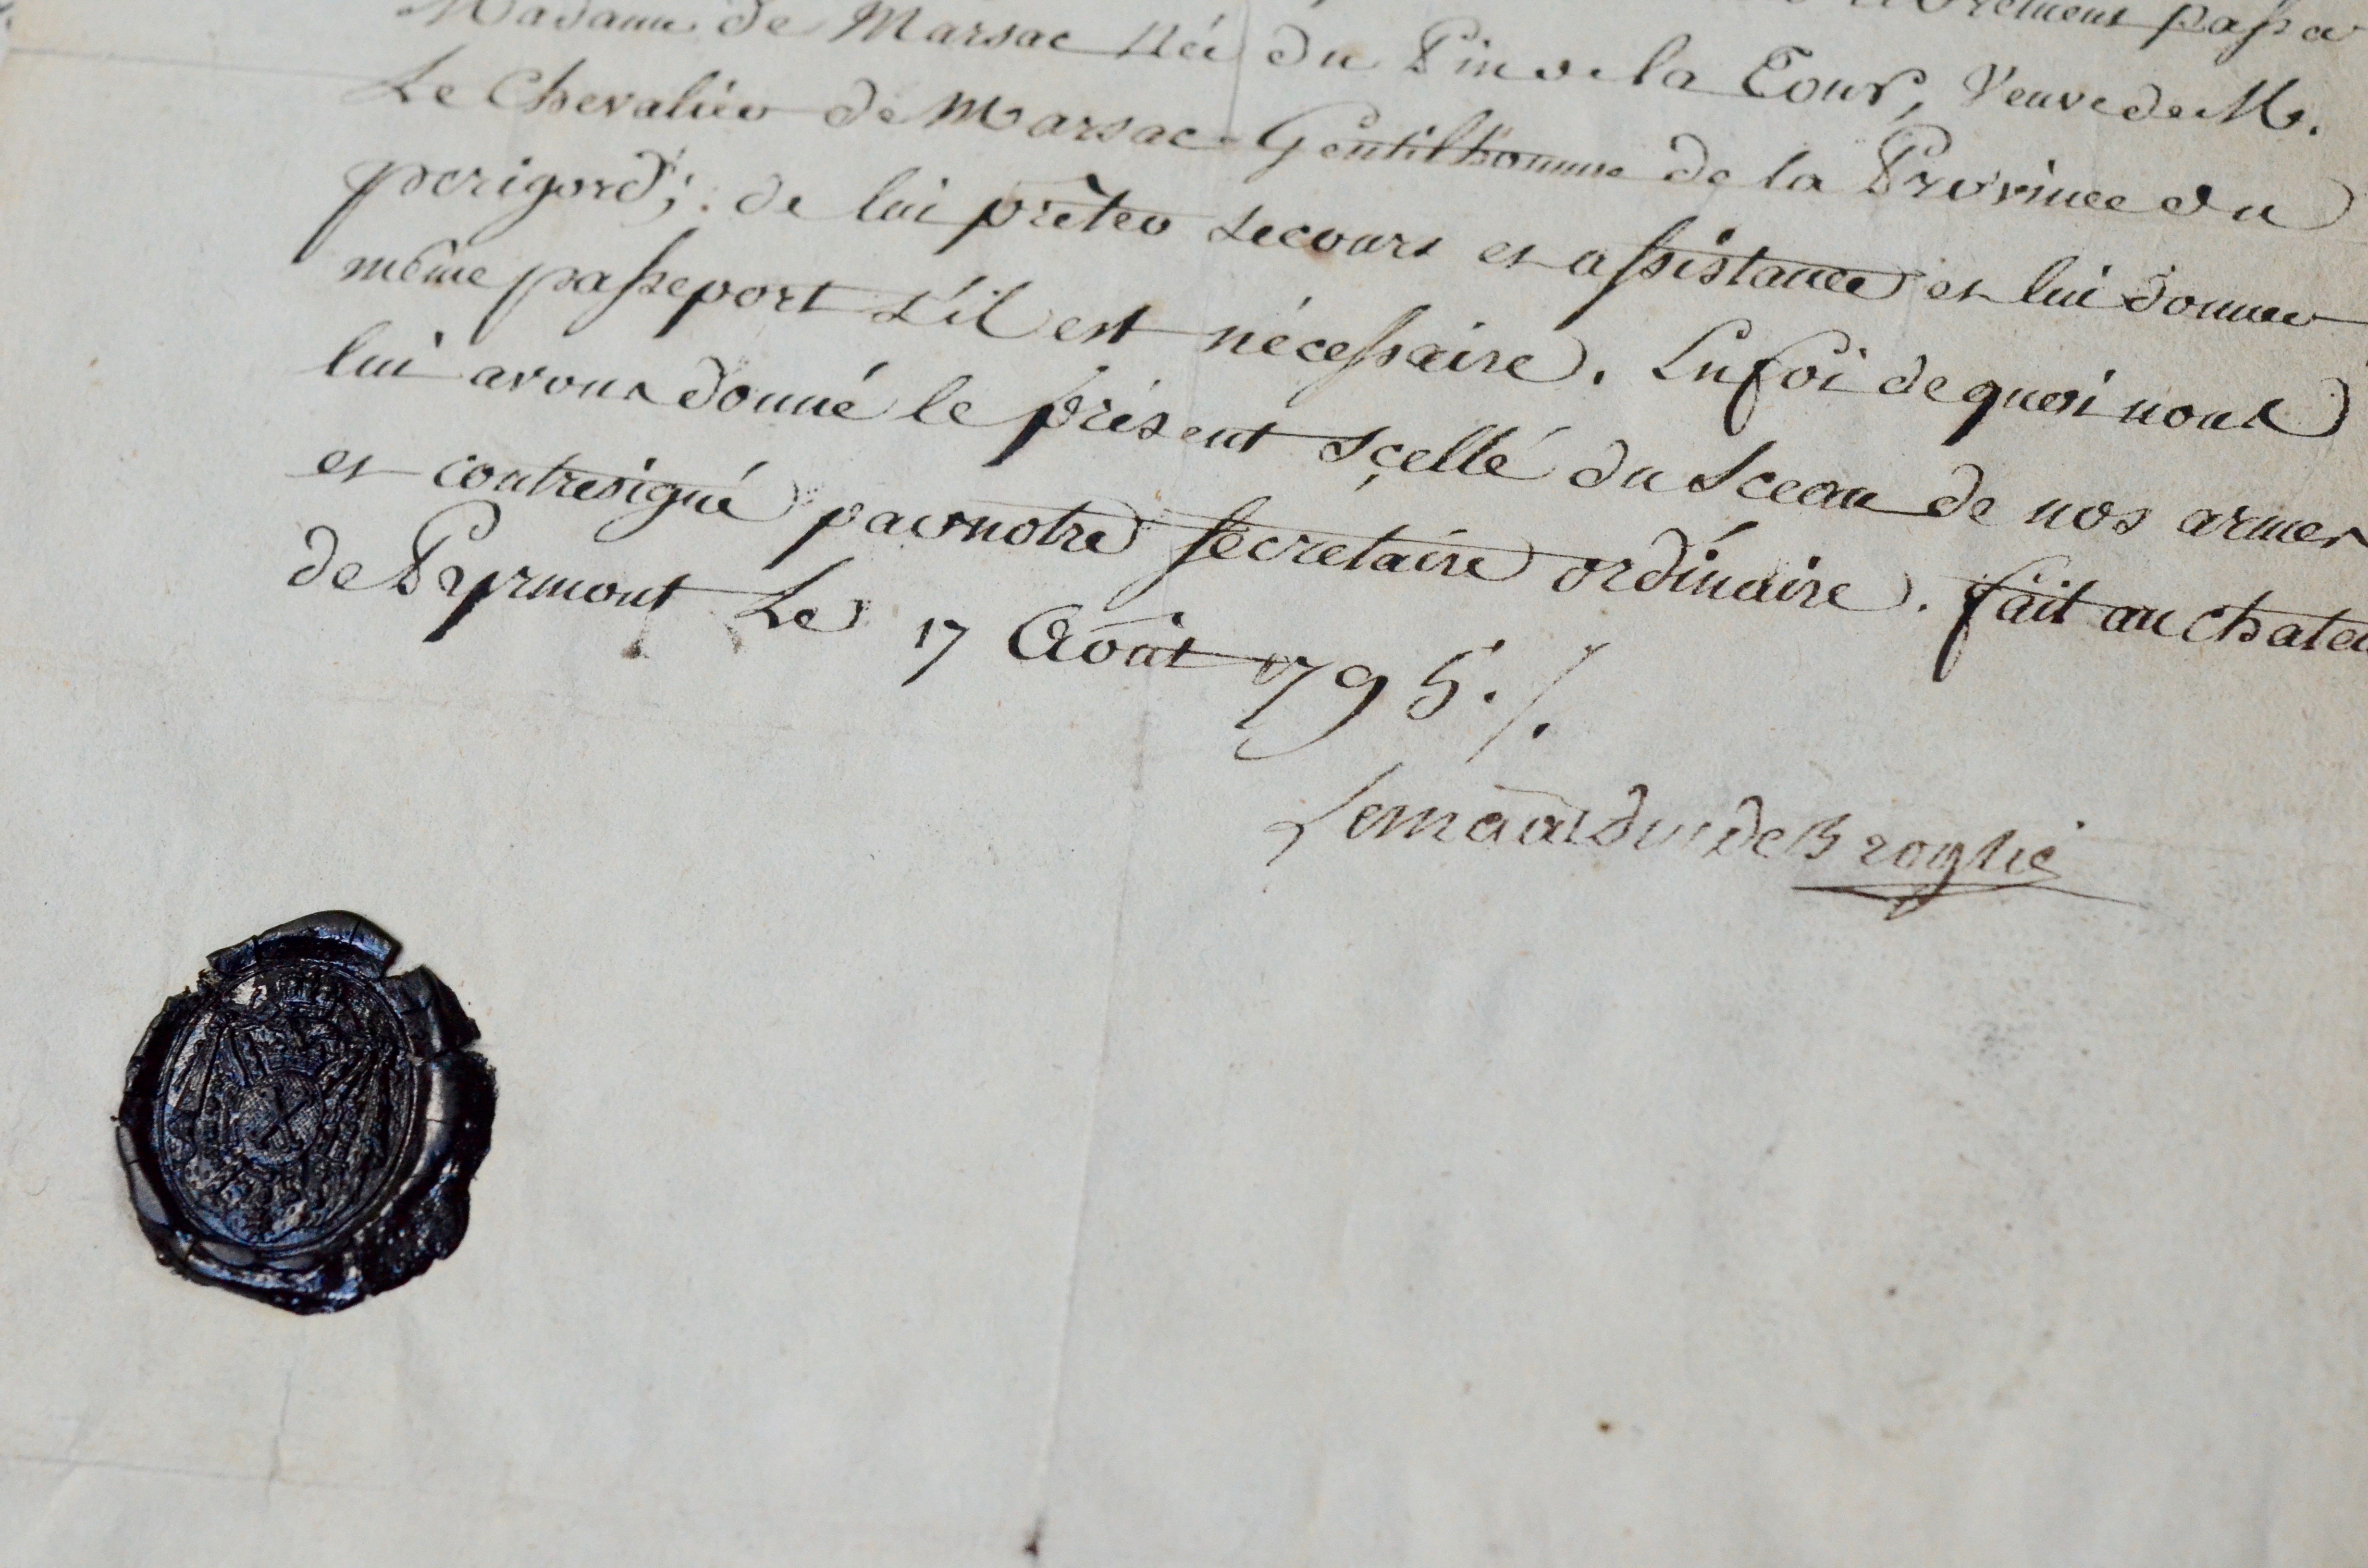 librement passer
Madame de Marsac née du Pin de la Tour, Veuve de M.
Le Chevalier de Marsac Gentilhomme de la Province du
perigord; de lui prêter secours et assistance et lui donner
même passeport s'il est nécessaire. En foi de quoi nous
lui avons donné le présent sçellé du Sceau de nos armes
et contresigné par notre secretaire ordinaire. fait au chatea
de Pyrmont Le 17 Août 1795./.
Le mãal duc de Broglie